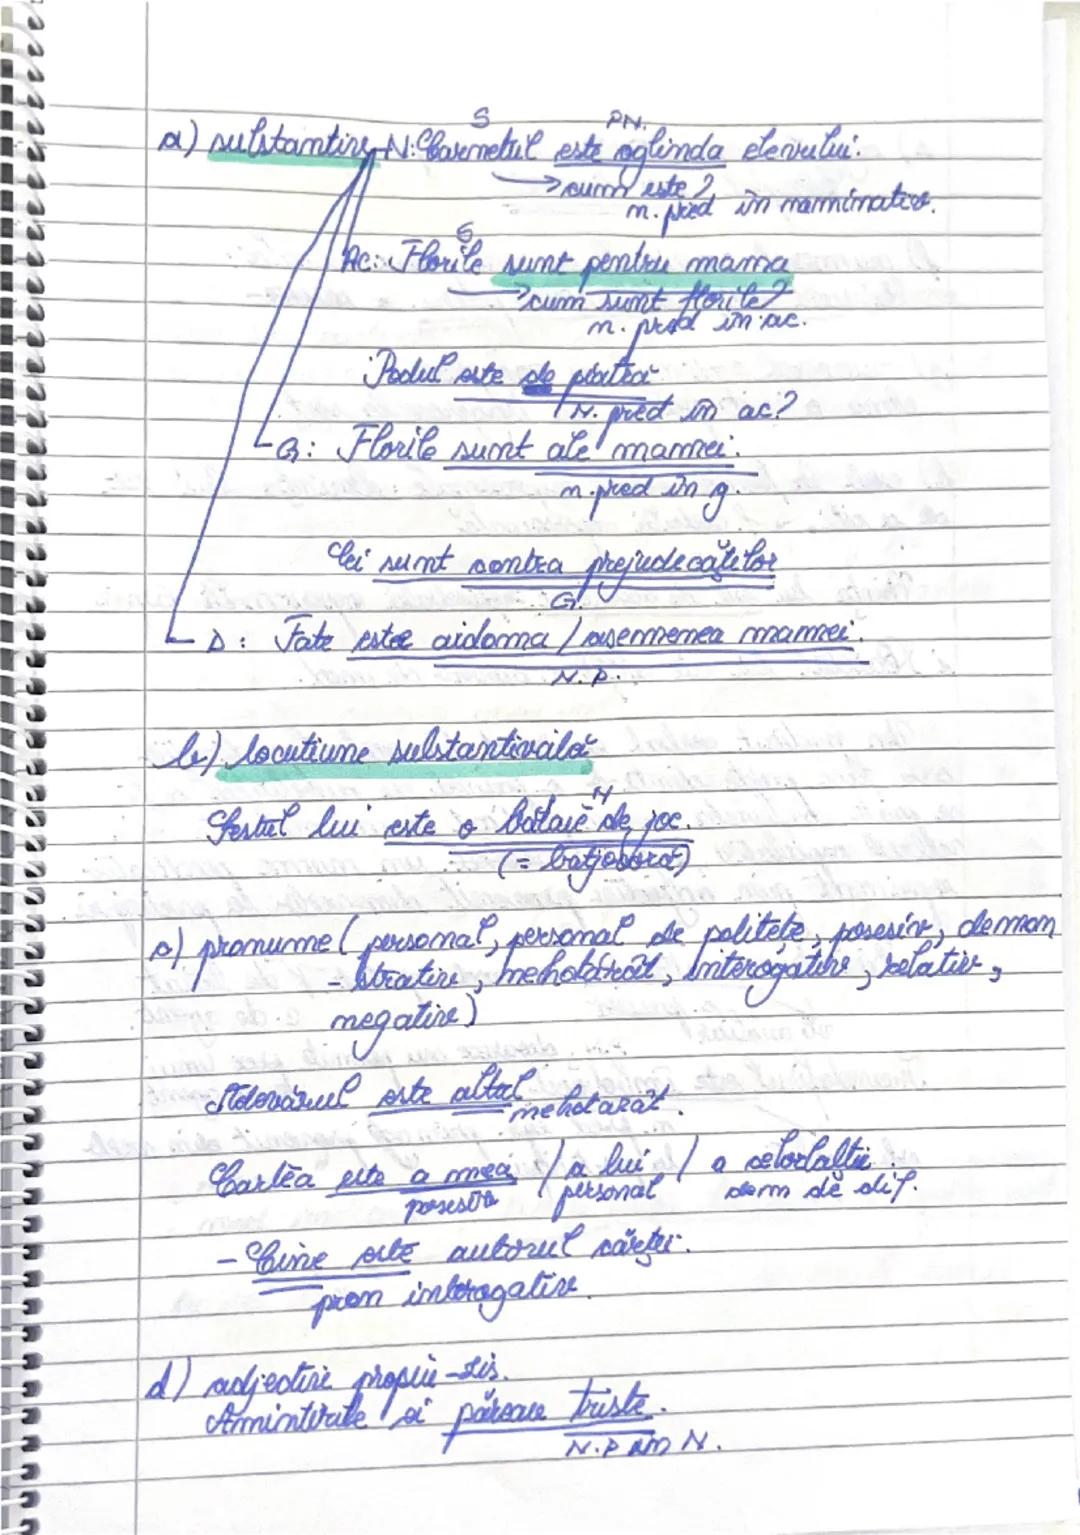 S PN.
a) substantiv N: Carnetul este oglinda elevului.
→ cum este?
n. pred în nominativ.
S
Ac: Florile sunt pentru mama
→ cum sunt florile?
n. pred în ac.
Podul este de piatră
N. pred în ac?
G: Florile sunt ale mamei.
n. pred în g.
Ei sunt contra prejudecăților
G
D: Fata este aidoma / asemenea mamei.
N.P.
b) locutiune substantivală
N
Gestul lui este o bătaie de joc.
(= batjocură)
c) pronume (personal, personal de politețe, posesiv, demon
- strativ, nehotărât, interogativ, relativ,
negativ)
Adevărul este altul
nehotarât.
Cartea este a mea / a lui / a celorlalți.
posesiv personal dem de dif.
- Cine este autorul cărții.
pron interogativ
d) adjectiv propriu-zis.
Amintirile ei păreau triste.
N.P în N.